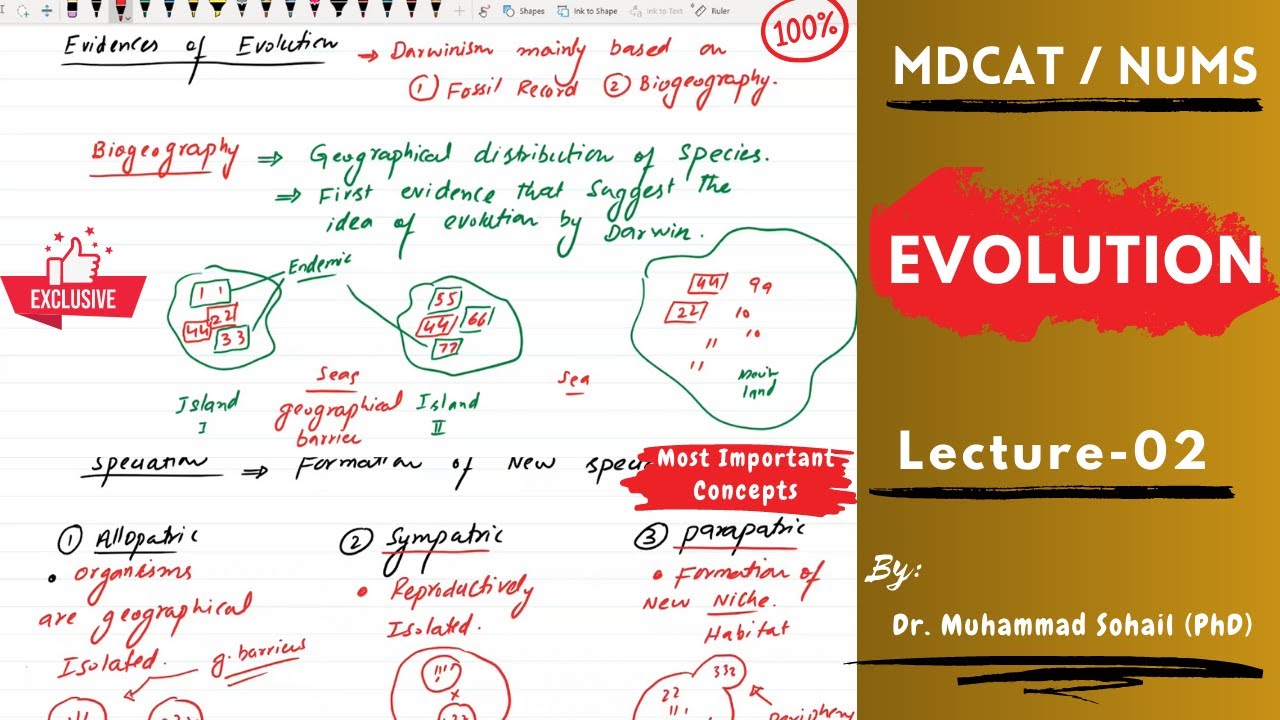 Shapes
Ink to Shape
Ink to Text
Ruler
100%
Evidences of Evolution → Darwinism mainly based on
① Fossil Record ② Biogeography.
Biogeography ⇒ Geographical distribution of species.
⇒ First evidence that suggest the
idea of evolution by Darwin.
EXCLUSIVE
Endemic
11
22
44
33
55
44
66
77
44 99
22 10
10
11
11
land
Seas
geographical
barrier
Sea
Island
I
Island
II
Speciation ⇒ Formation of New spec
Most Important
Concepts
① Allopatric
• organisms
are geographical
Isolated.
g. barriers
② Sympatric
• Reproductively
Isolated.
③ parapatric
• Formation of
New Niche.
Habitat
22
111
332
MDCAT / NUMS
EVOLUTION
Lecture-02
By:
Dr. Muhammad Sohail (PhD)